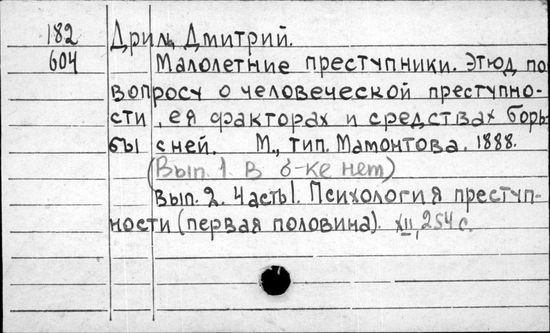 182 Дрил, Дмитрий.
604 Малолетние преступники. Этюд по
вопросу о человеческой преступно-
сти, ея факторах и средствах борь-
бы с ней. М., тип. Мамонтова. 1888.
(Вып. 1. В б-ке нет)
Вып. 2. Часть I. Психология преступ-
ности (первая половина). XII, 254 с.